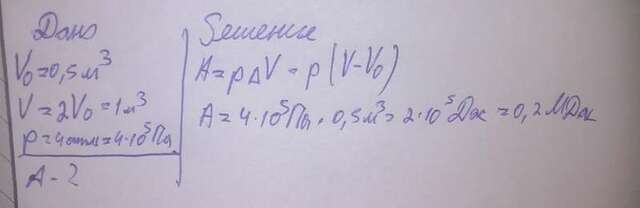 Дано
V₀=0,5м³
V=2V₀=1м³
p=4атм=4·10⁵Па
A-?
Решение
A=pΔV=p(V-V₀)
A=4·10⁵Па·0,5м³=2·10⁵Дж=0,2МДж